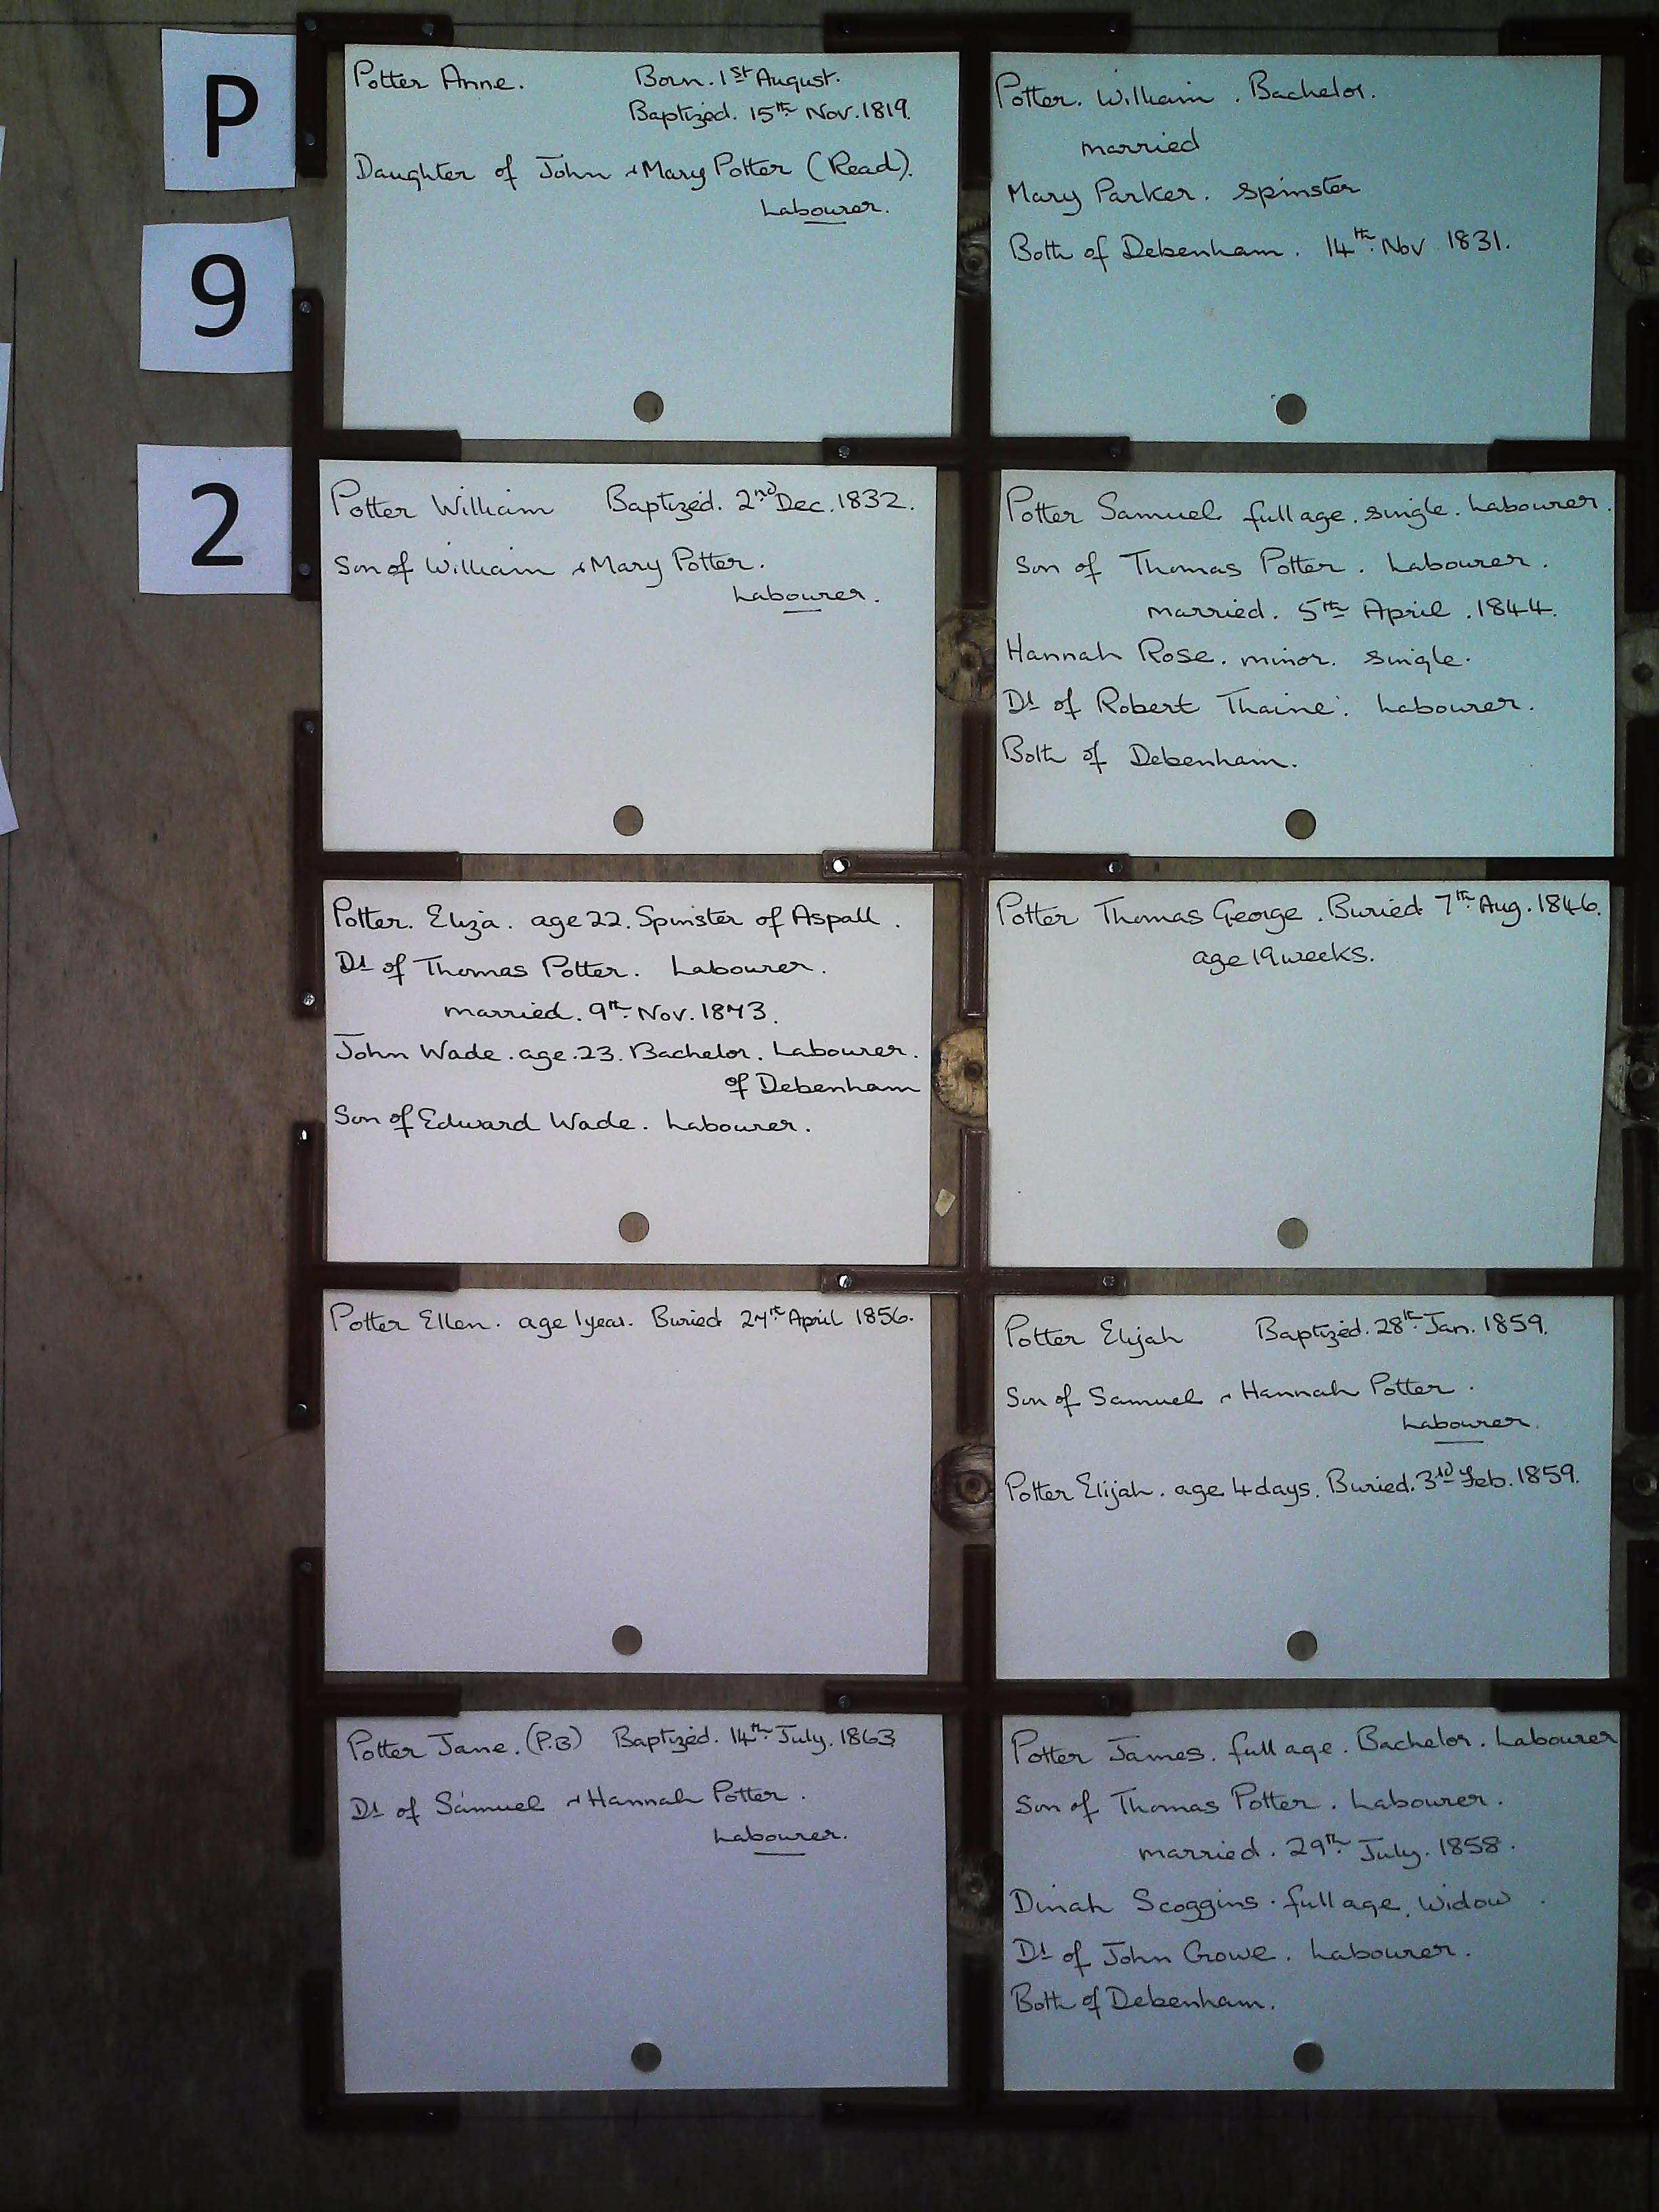 P
9
2
Potter Anne. Born. 1st August.
Baptized. 15th Nov. 1819.
Daughter of John & Mary Potter (Read).
Labourer.
Potter. William. Bachelor.
married
Mary Parker. Spinster
Both of Debenham. 14th Nov 1831.
Potter William Baptized. 2nd Dec. 1832.
Son of William & Mary Potter.
Labourer.
Potter Samuel full age. single. Labourer.
Son of Thomas Potter. Labourer.
married. 5th April. 1844.
Hannah Rose. minor. single.
Dt of Robert Thaine. Labourer.
Both of Debenham.
Potter. Eliza. age 22. Spinster of Aspall.
Dt of Thomas Potter. Labourer.
married. 9th Nov. 1843.
John Wade. age. 23. Bachelor. Labourer.
of Debenham
Son of Edward Wade. Labourer.
Potter Thomas George. Buried 7th Aug. 1846.
age 19 weeks.
Potter Ellen. age 1 year. Buried 24th April 1856.
Potter Elijah Baptized. 28th Jan. 1859.
Son of Samuel & Hannah Potter.
Labourer.
Potter Elijah. age 4 days. Buried. 3rd Feb. 1859.
Potter Jane. (P.B) Baptized. 14th July. 1863
Dt of Samuel & Hannah Potter.
Labourer.
Potter James. full age. Bachelor. Labourer
Son of Thomas Potter. Labourer.
married. 29th July. 1858.
Dinah Scoggins. full age. Widow.
Dt of John Crowe. Labourer.
Both of Debenham.